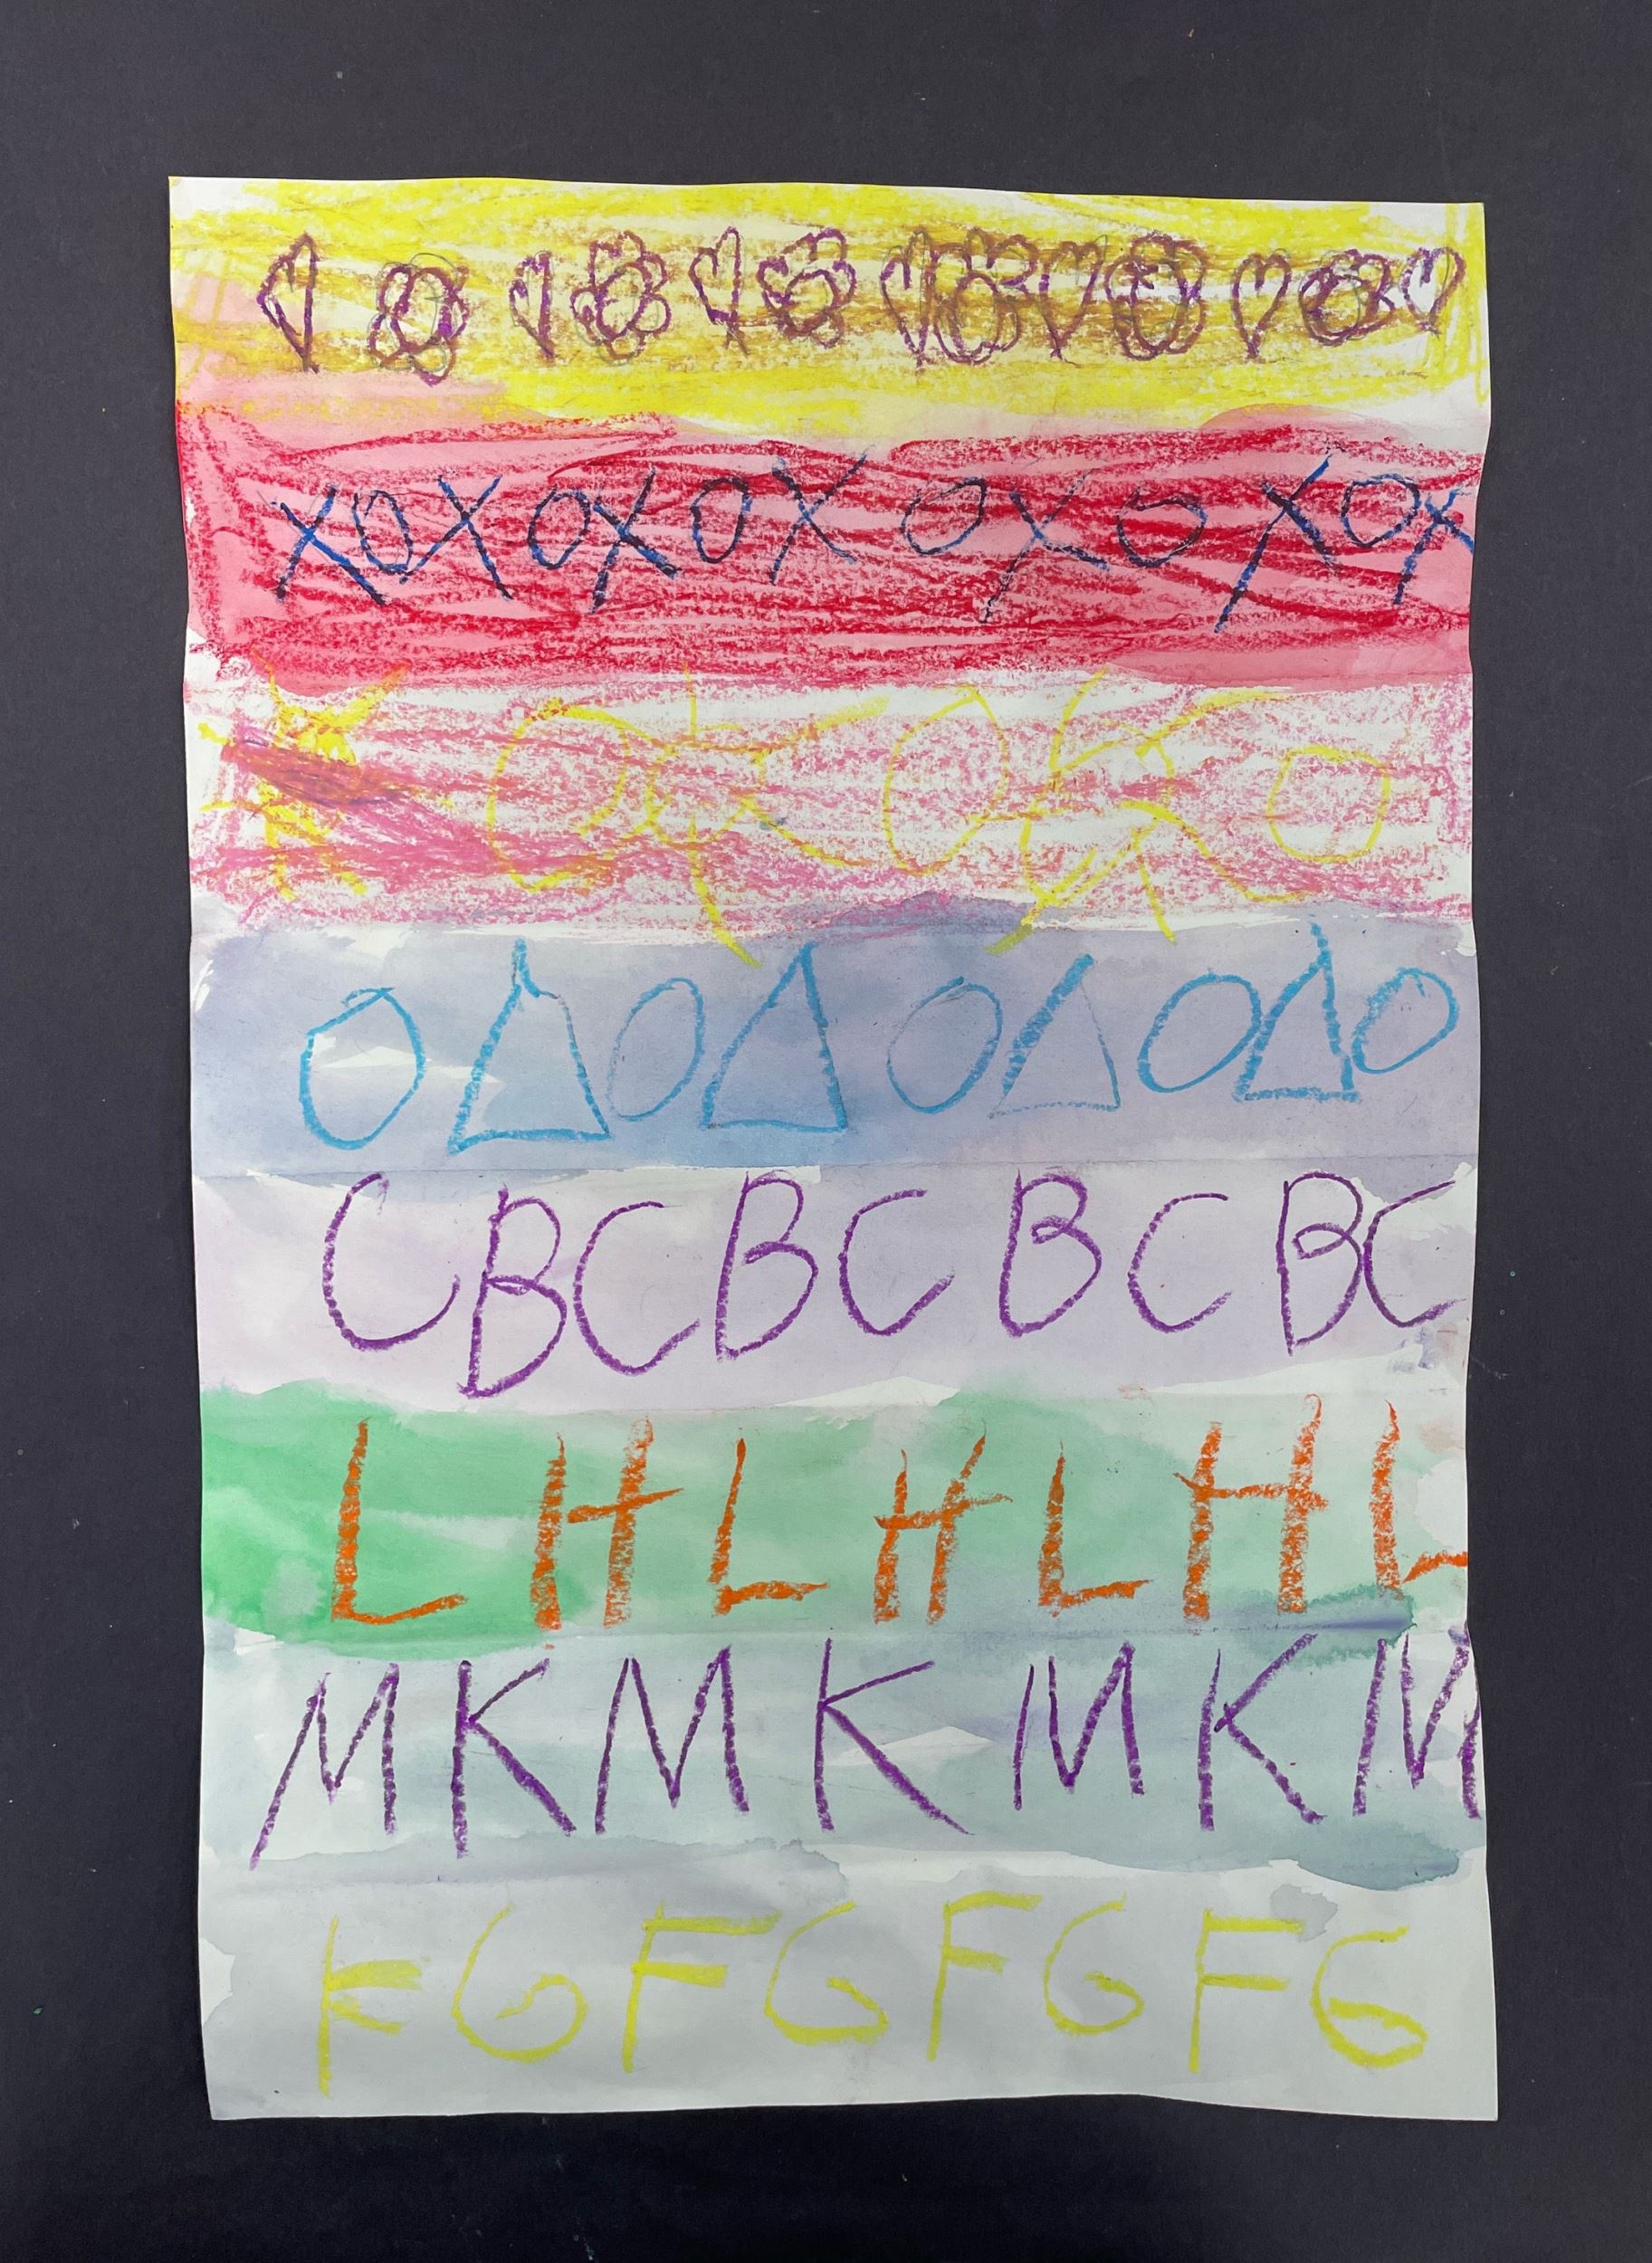 XOXOXOXOXOXOX
CBCBCBCBC
LHLHLHL
MKMKMKM
FGFGFGFG